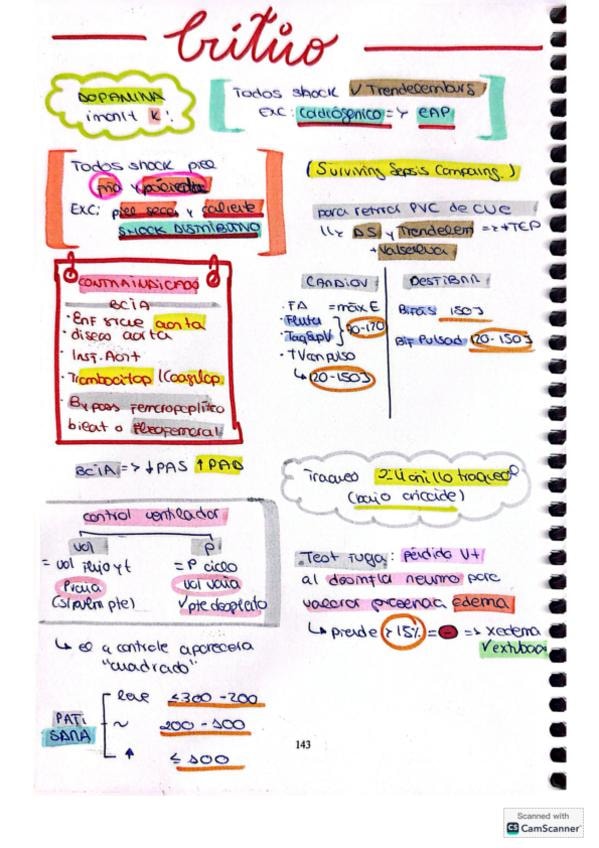 Crítico
DOPAMINA
monit K:
Todos shock ✓ Trendelemburg
EXC: cardiogénico => EAP
Todos shock piel
fría y pálida
EXC: piel seca y caliente
SHOCK DISTRIBUTIVO
(Surviving Sepsis Campaing)
para retirar PVC de CUE
DS y Trendelem => ++TEP
+ Valsalva
CONTRAINDICADO
BCIA
· Enf arcue aorta
· disecc aorta
· Insf. Aort
· Trombocitop / Coagulop
· Bypass femoropoplíteo
bilat o Iliofemoral
CARDIOV
· FA = máx E
· Flutter
· TaqSpV } 70-120
· TV con pulso
↳ 120-150J
DESFIBRIL
Bifás 150J
Bif Pulsad 120-150J
BCIA => ↓PAS ↑PAD
Traqueo 2-4 anillo traqueal
(bajo cricoide)
control ventilador
vol
= vol flujo y t
P varía
(siempre pte)
P
= P ciclo
vol varía
✓ pte despierto
↳ el q controle aparecerá
"cuadrado"
Test fuga: pérdida Vt
al desinfla neumo para
valorar presencia edema
↳ pierde >15% = - => x edema
✓ extubación
PAFI
SDRA
leve ≤300-200
~ 200-100
↑ ≤ 100
143
Scanned with
CS CamScanner